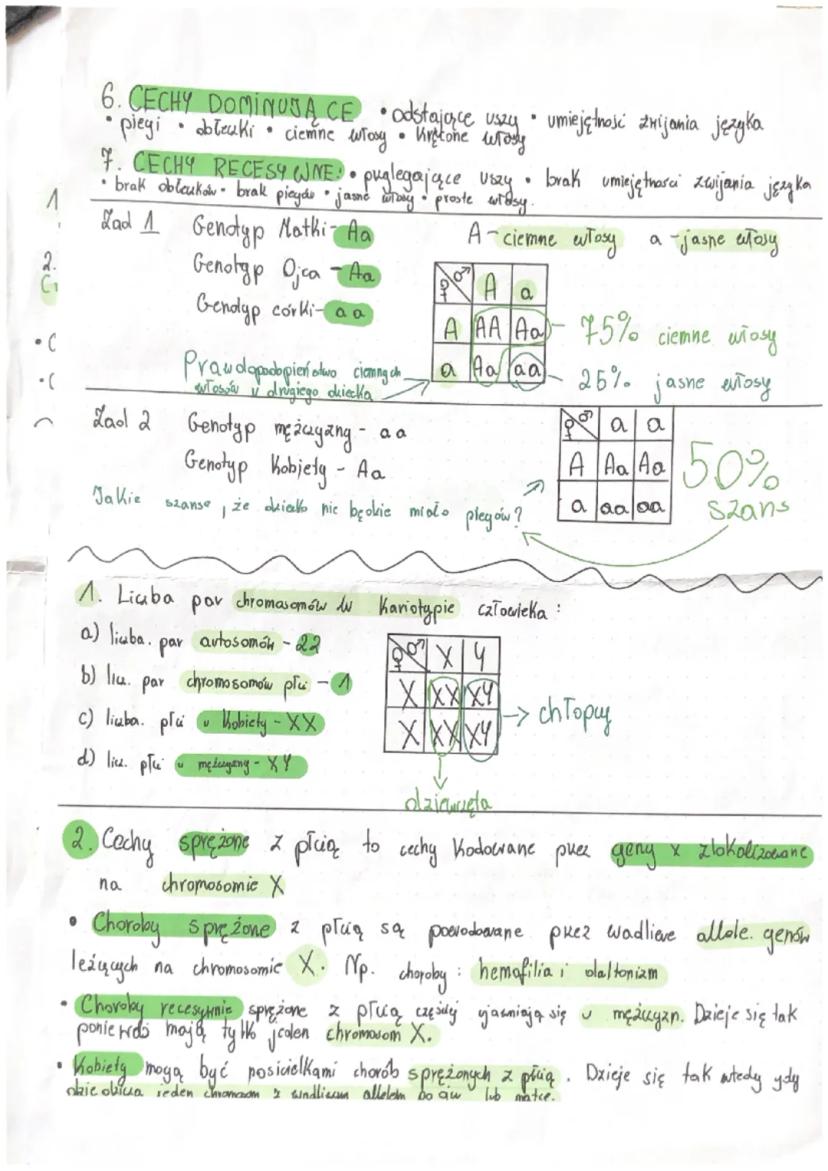 6. CECHY DOMINUJĄCE • odstające uszy • umiejętność zwijania języka
• piegi • obłeuki • ciemne włosy • kręcone włosy
7. CECHY RECESYWNE: • puglegające uszy • brak umiejętności zwijania języka
• brak obłeuków • brak piegów • jasne włosy • proste włosy.
Zad 1 Genotyp Matki - Aa A - ciemne włosy a - jasne włosy
Genotyp Ojca - Aa
Genotyp córki - aa
♀ ♂ A a
A AA Aa
a Aa aa
75% ciemne włosy
25% jasne włosy
Prawdopodopieństwo ciemnych
włosów u drugiego dziecka
Zad 2 Genotyp mężczyzny - aa
Genotyp Kobiety - Aa
Jakie szanse, że dziecko nie będzie miało piegów?
♀ ♂ a a
A Aa Aa
a aa aa
50%
szans
1. Liczba par chromasomów w Kariotypie człowieka:
a) liczba. par autosomów - 22
b) licz. par chromosomów płci - 1
c) liczba. płci u kobiety - XX
d) licz. płci u mężczyzny - XY
♀ ♂ X Y
X XX XY
X XX XY
→ chłopcy
dziewczęta
2. Cechy sprężone z płcią to cechy kodowane przez geny x zlokalizowane
na chromosomie X
• Choroby sprężone z płcią są powodowane przez wadliwe allele. genów
leżących na chromosomie X. Np. choroby: hemofilia i daltonizm
• Choroby recesywnie sprężone z płcią częściej ujawniają się u mężczyzn. Dzieje się tak
ponieważ mają tylko jeden chromosom X.
• Kobiety mogą być nosicielkami chorób sprężonych z płcią. Dzieje się tak wtedy gdy
jeden chromosom z wadliwym allelem po ojcu lub matce.